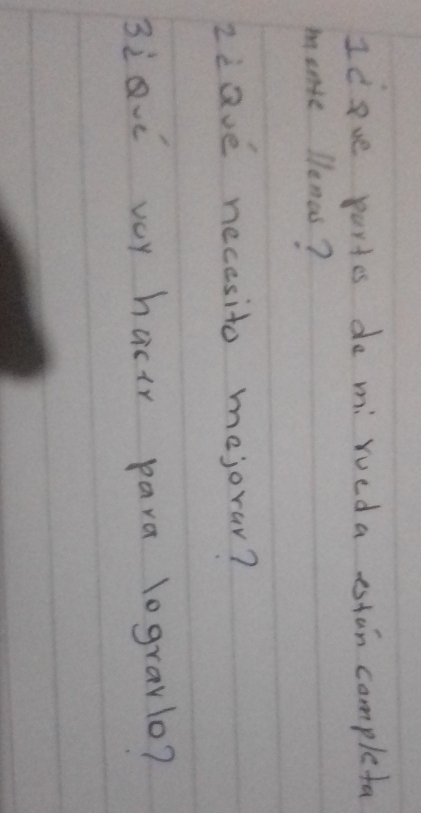 1¿Que partes de mi rueda están completa
mente llenas?
2¿Qué necesito mejorar?
3¿Qué voy hacer para lograrlo?